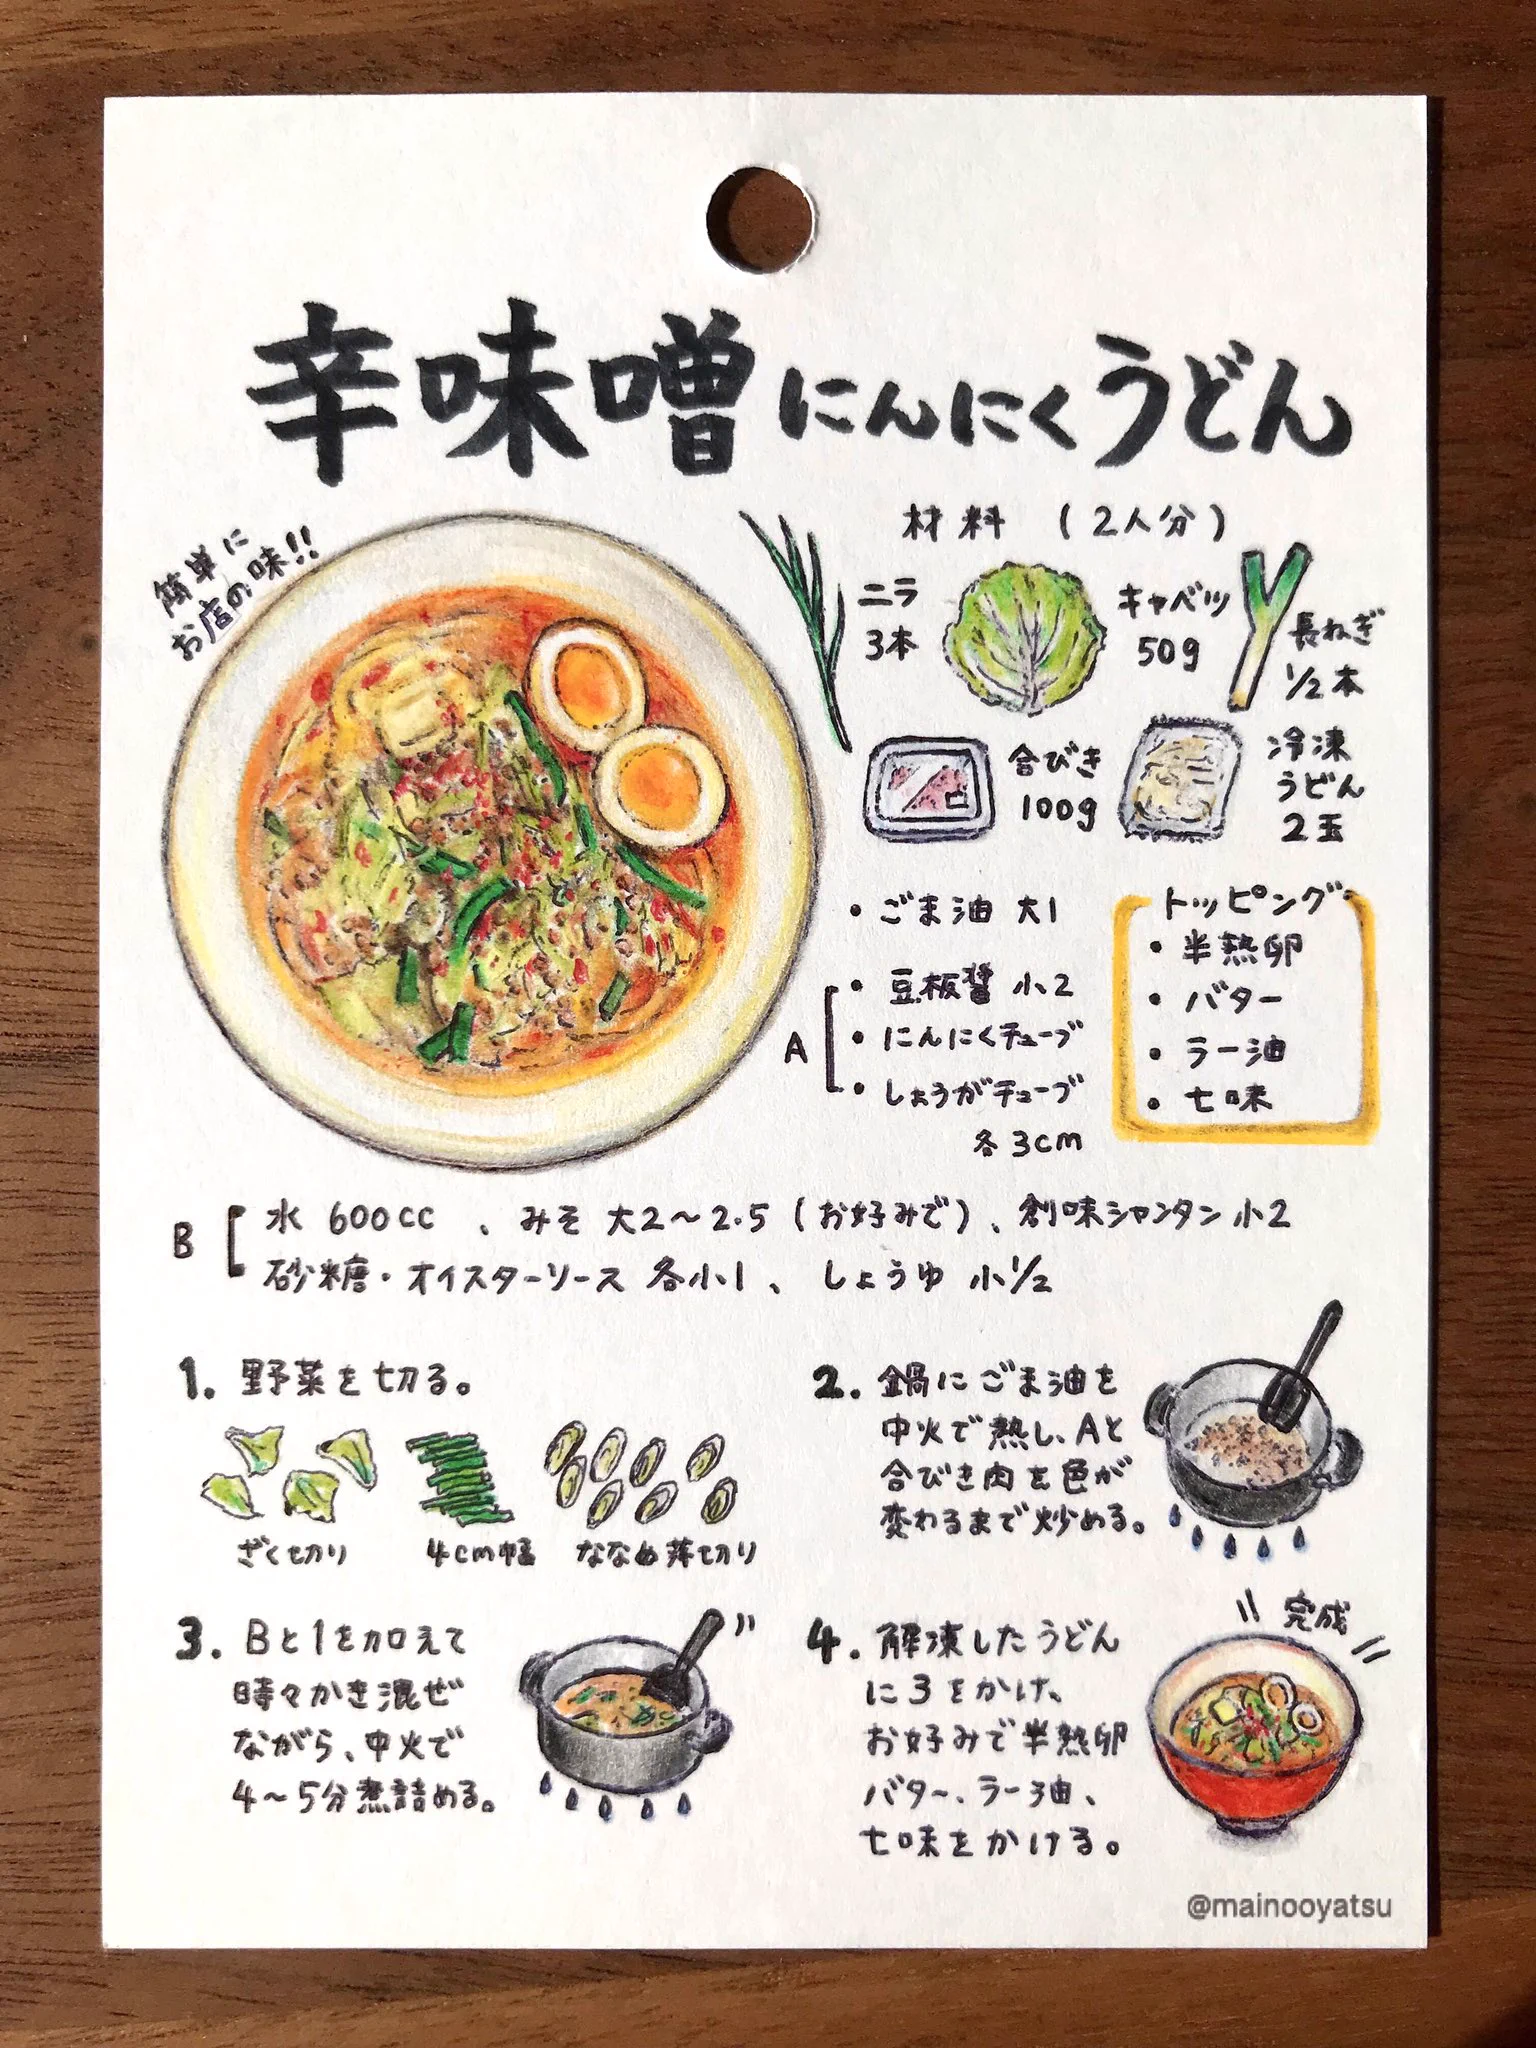 辛味噌にんにくうどん
簡単に
お店の味!!
材料 (2人分)
ニラ
3本
キャベツ
50g
長ねぎ
1/2本
合びき
100g
冷凍
うどん
2玉
・ごま油 大1
A
・豆板醤 小2
・にんにくチューブ
・しょうがチューブ
各3cm
トッピング
・半熟卵
・バター
・ラー油
・七味
B
水 600cc 、みそ 大2〜2.5 (お好みで)、創味シャンタン 小2
砂糖・オイスターソース 各小1、しょうゆ 小1/2
1. 野菜を切る。
ざく切り
4cm幅
ななめ薄切り
2. 鍋にごま油を
中火で熱し、Aと
合びき肉を色が
変わるまで炒める。
3. Bと1を加えて
時々かき混ぜ
ながら、中火で
4〜5分煮詰める。
4. 解凍したうどん
に3をかけ、
お好みで半熟卵
バター、ラー油、
七味をかける。
完成
@mainooyatsu